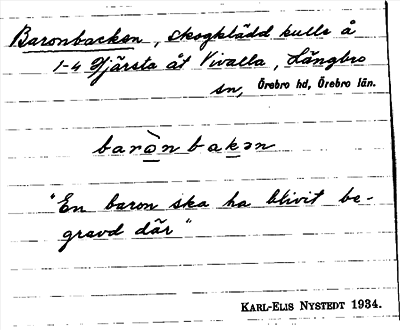 Baronbacken, skogklädd kulle å
1-4 Hjärsta åt Vivalla, Längbro
sn, Örebro hd, Örebro län.
baròn bakən
"En baron ska ha blivit be-
gravd där"
KARL-ELIS NYSTEDT 1934.